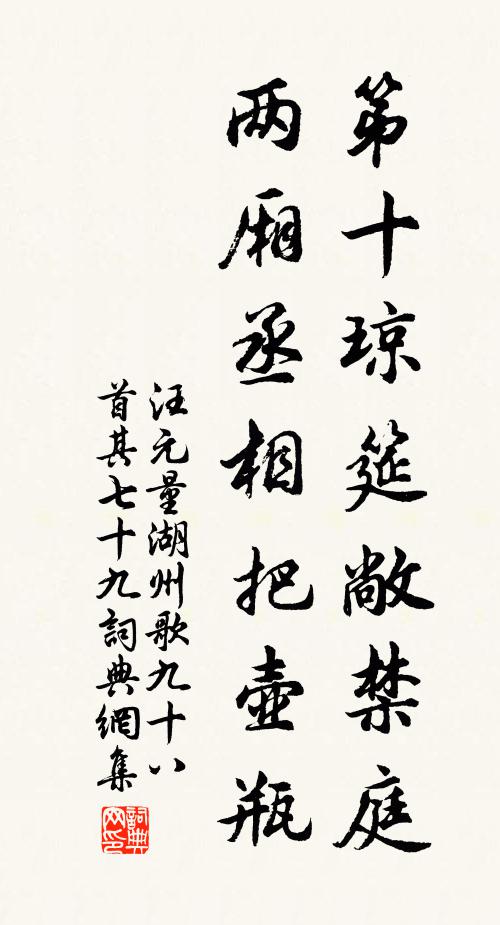 第十琼筵敞禁庭
两厢丞相把壶瓶
汪元量湖州歌九十八
首其七十九詞典網集
詞典
网印